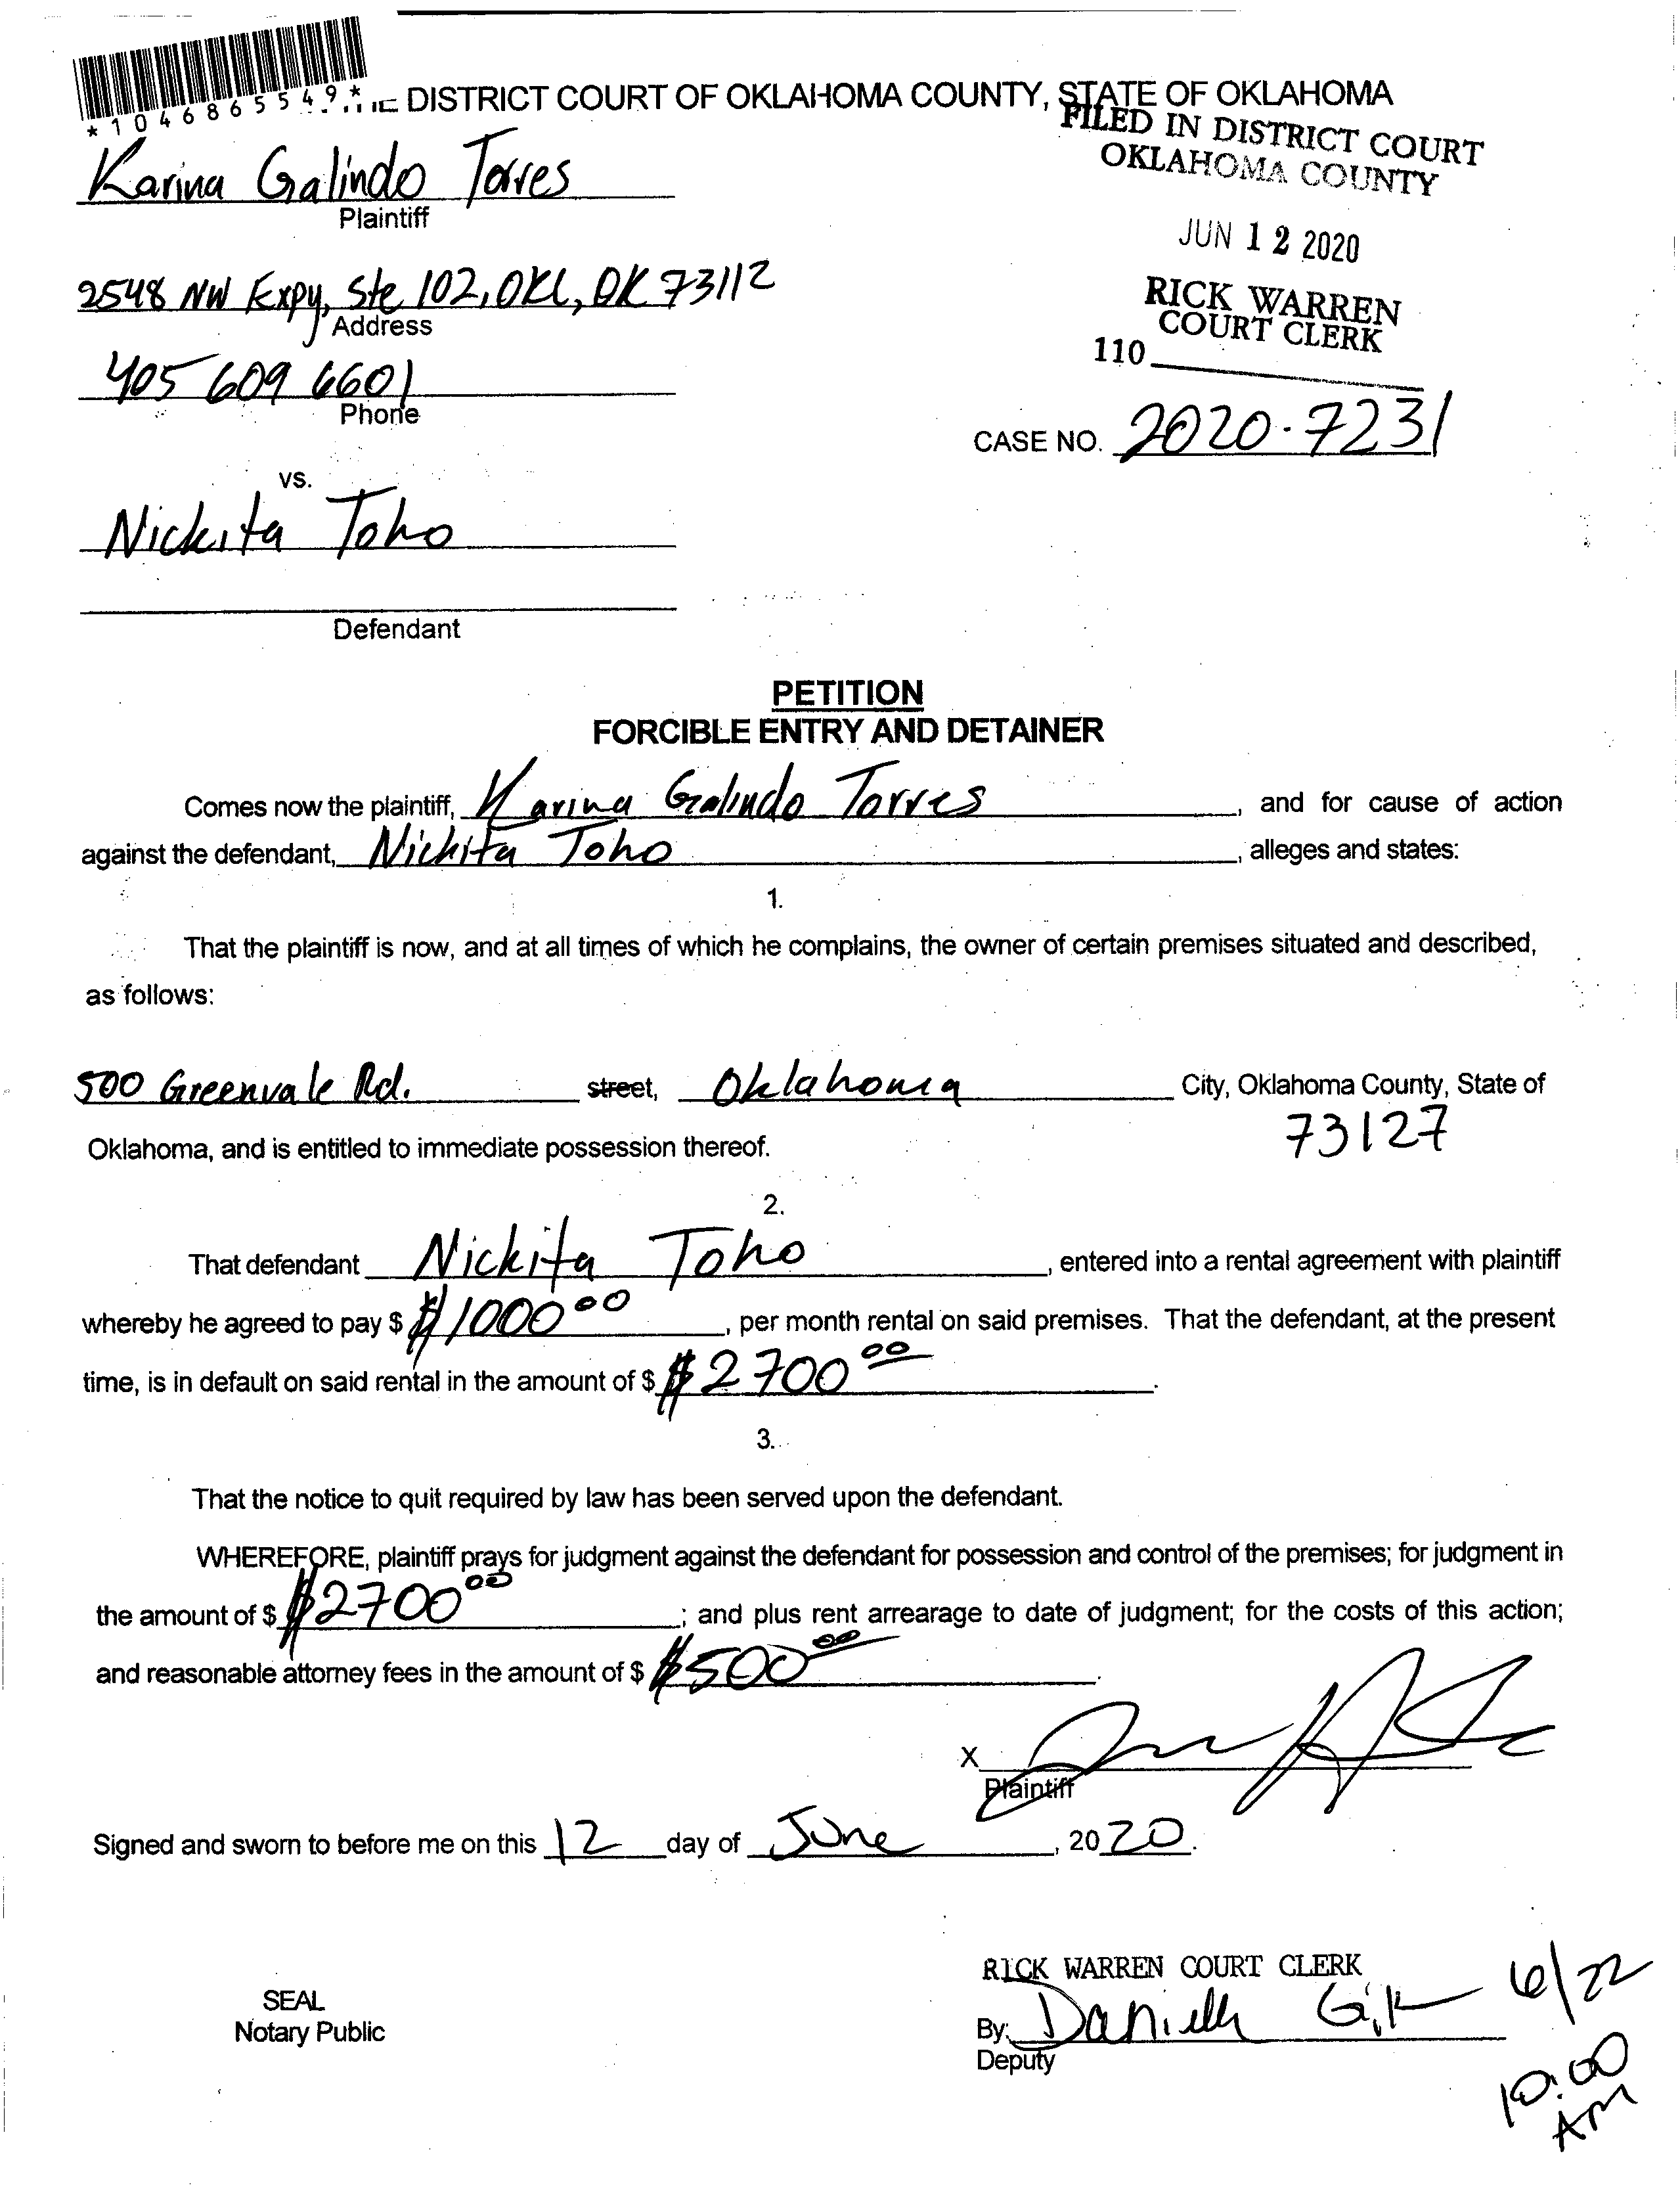 *1046865549*
DISTRICT COURT OF OKLAHOMA COUNTY, STATE OF OKLAHOMA
FILED IN DISTRICT COURT
OKLAHOMA COUNTY
Karina Galindo Torres
Plaintiff
JUN 12 2020
2548 NW Expy, Ste 102, OKC, OK 73112
Address
RICK WARREN
COURT CLERK
110
405 609 6601
Phone
CASE NO. 2020-7231
vs.
Nickita Toho
Defendant
PETITION
FORCIBLE ENTRY AND DETAINER
Comes now the plaintiff, Karina Galindo Torres, and for cause of action
against the defendant, Nickita Toho, alleges and states:
1.
That the plaintiff is now, and at all times of which he complains, the owner of certain premises situated and described,
as follows:
500 Greenvale Rd. street, Oklahoma City, Oklahoma County, State of
73127
Oklahoma, and is entitled to immediate possession thereof.
2.
That defendant Nickita Toho, entered into a rental agreement with plaintiff
whereby he agreed to pay $ $1000 00, per month rental on said premises. That the defendant, at the present
time, is in default on said rental in the amount of $ $2700 00.
3.
That the notice to quit required by law has been served upon the defendant.
WHEREFORE, plaintiff prays for judgment against the defendant for possession and control of the premises; for judgment in
the amount of $ $2700 00; and plus rent arrearage to date of judgment; for the costs of this action;
and reasonable attorney fees in the amount of $ $500 00.
X
Plaintiff
Signed and sworn to before me on this 12 day of June, 2020.
RICK WARREN COURT CLERK
6/22
SEAL
Notary Public
By: Danielle
Deputy
10:00
AM